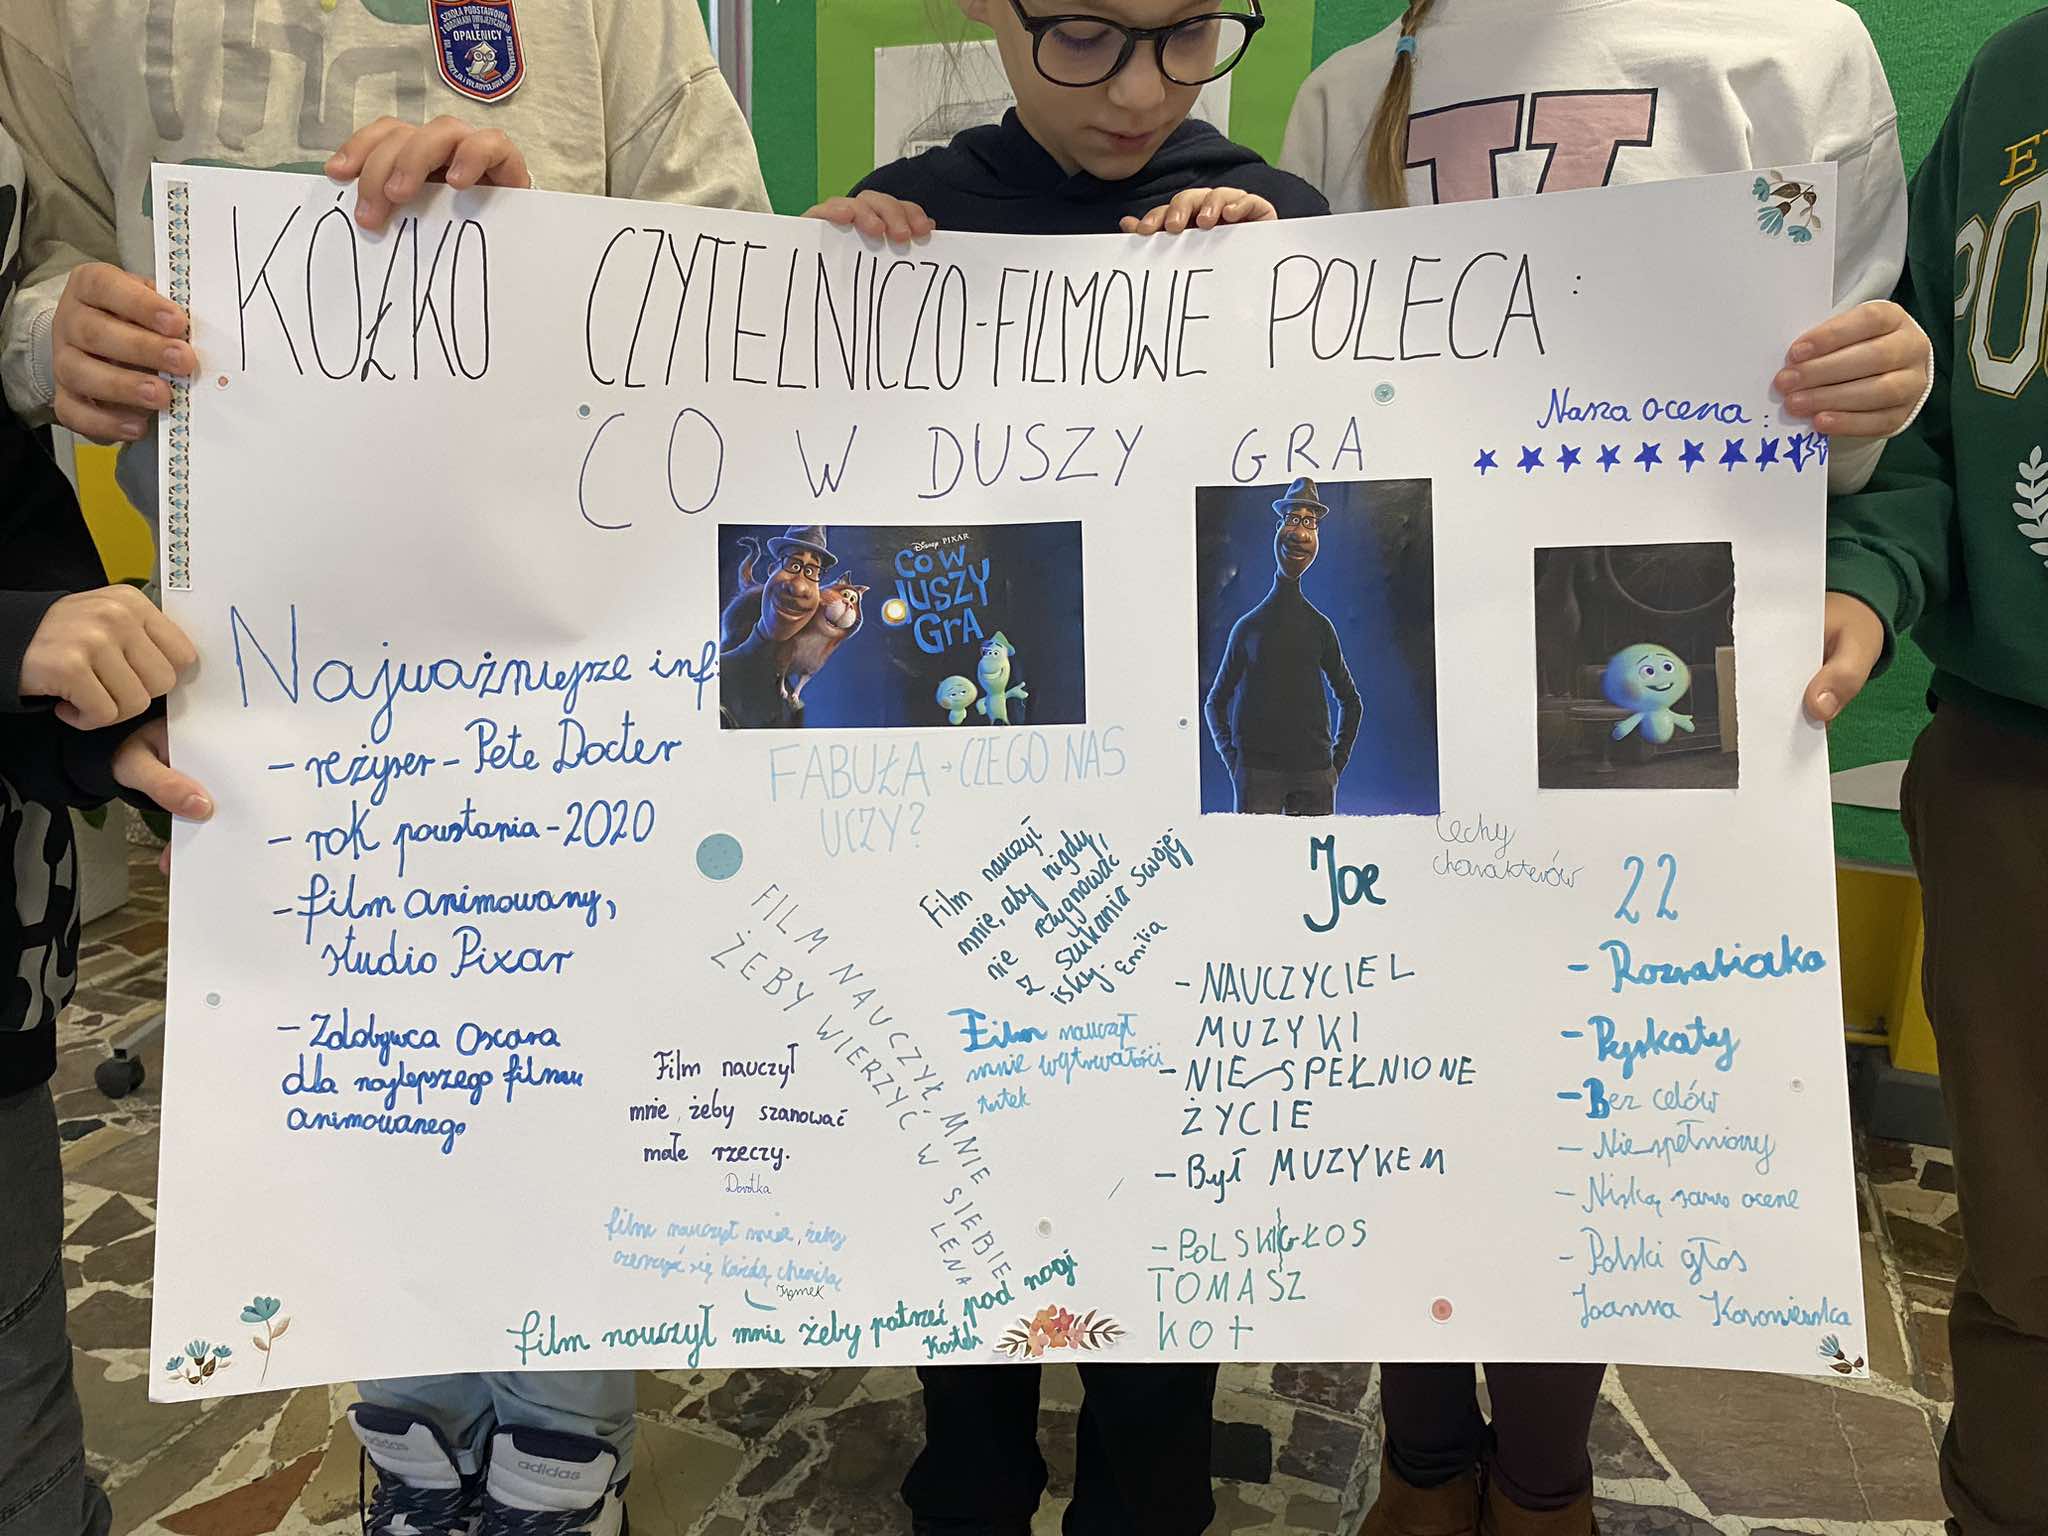 SZKOŁA PODSTAWOWA
Z ODDZIAŁAMI DWUJĘZYCZNYMI
W
OPALENICY
KÓŁKO CZYTELNICZO-FILMOWE POLECA:
CO W DUSZY GRA
Nasza ocena:
Disney PIXAR
CO W
dUSZY
GrA
Najważniejsze inf:
- reżyser - Pete Docter
- rok powstania - 2020
- film animowany,
studio Pixar
- Zdobywca Oscara
dla najlepszego filmu
animowanego
FABUŁA → CZEGO NAS
UCZY?
Film nauczył
mnie, aby nigdy,
nie rezygnować
z szukania swojej
iskry. Emilia
FILM NAUCZYŁ MNIE
ŻEBY WIERZYĆ W SIEBIE
LENA
Film nauczył
mnie wytrwałości
Film nauczył
mnie, żeby szanować
małe rzeczy.
Dorotka
film nauczył mnie, żeby
cieszyć się każdą chwilą
Tymek
film nauczył mnie żeby patrzeć pod nogi
Joe
- NAUCZYCIEL
MUZYKI
- NIE SPEŁNIONE
ŻYCIE
- Był MUZYKEM
- POLSKI GŁOS
TOMASZ
KOT
Cechy
charakterów
22
- Rozrabiaka
- Pyskaty
- Bez celów
- Nie spełniony
- Niską samo ocene
- Polski głos
Joanna
adidas
adidas